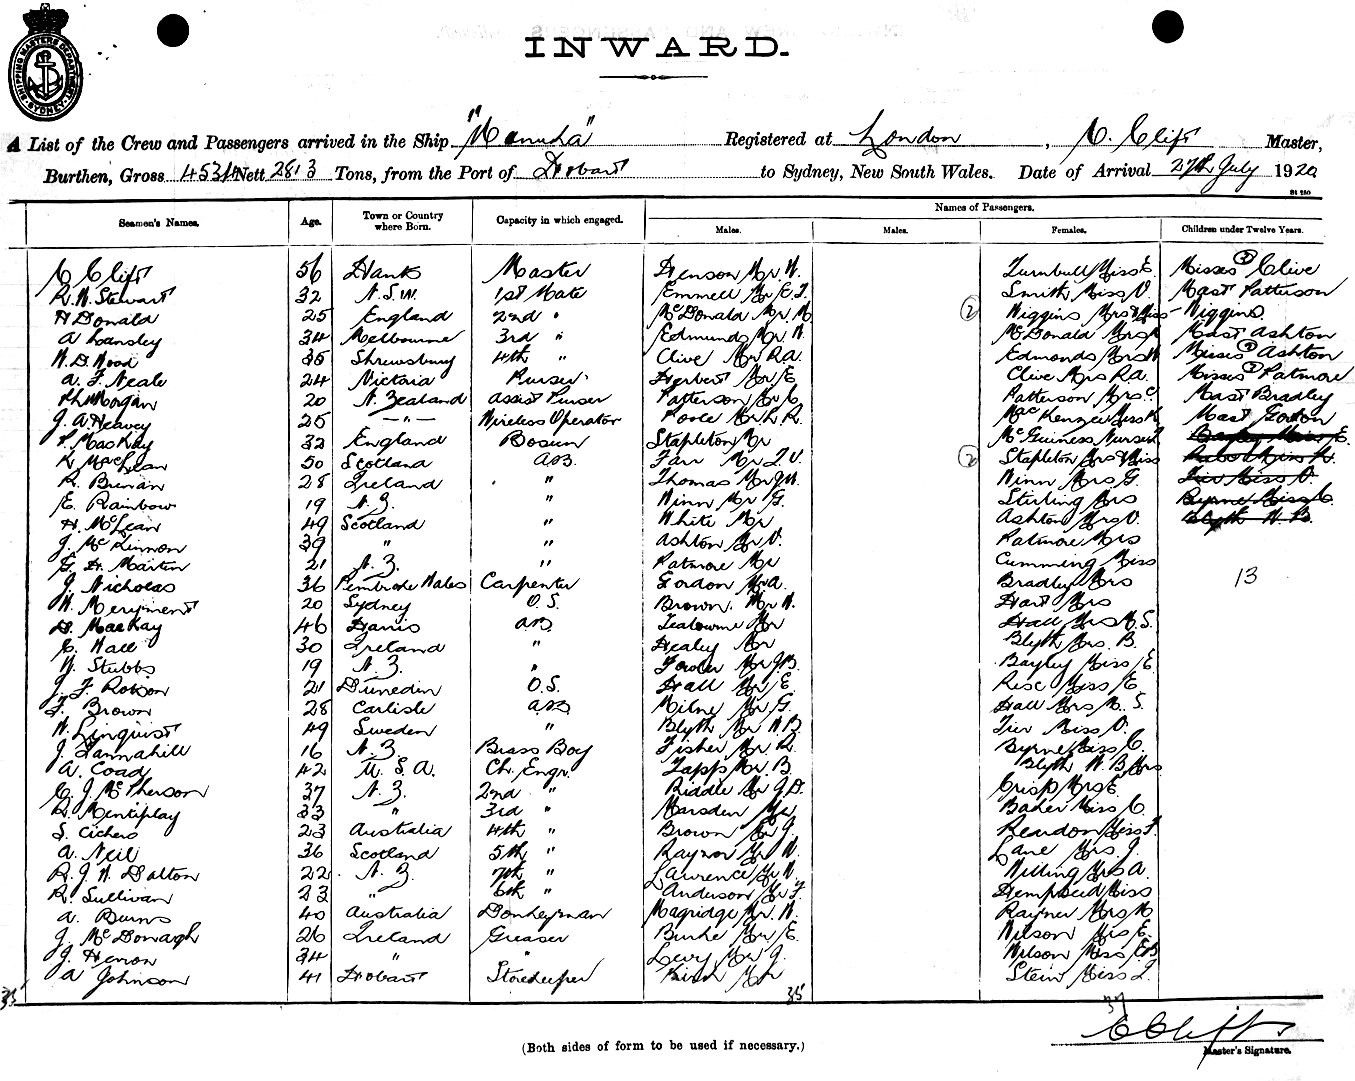 SHIPPING MASTERS DEPARTMENT SYDNEY
INWARD.
A List of the Crew and Passengers arrived in the Ship "Manuka" Registered at London, C. Clift Master,
Burthen, Gross 4534 Nett 2813 Tons, from the Port of Hobart to Sydney, New South Wales. Date of Arrival 27th July 1920
Names of Passengers.
Seamen's Names. Age. Town or Country where Born. Capacity in which engaged. Males. Males. Females. Children under Twelve Years.
C Clift 56 Hants Master Henson Mr W. Turnbull Miss E. Misses (3) Clive
R. W. Stewart 32 N.S.W. 1st Mate Emmell Mr E.J. Smith Miss V. Mast Patterson
H Donald 25 England 2nd " McDonald Mr M (2) Wiggins Mrs & Miss - Wiggins
A Lansley 34 Melbourne 3rd " Edmunds Mr W. McDonald Mrs Mast Ashton
W. D. Wood 35 Shrewsbury 4th " Clive Mr R.A. Edmonds Mrs W Misses Ashton
A. F. Neale 24 Victoria Purser Herbert Mr E Clive Mrs R.A. Misses (2) Patmore
Morgan 20 N. Zealand Assist Purser Patterson Mr C Patterson Mrs C Mast Bradley
J. A Heavey 25 -"- Wireless Operator Poole Mr L.R. MacKenzie Miss Mast Gordon
MacKay 32 England Bosun Stapleton Mr McGuiness Nurse Bayley Miss E.
MacLean 50 Scotland A.B. Farr Mr (2) Stapleton Mrs & Miss
R. Brinan 28 Ireland " Thomas Mr Winn Mrs G. Tier Miss V.
E. Rainbow 19 N.Z. " Winn Mr G. Stirling Mrs Byrne Miss C.
H. McLean 49 Scotland " White Mr Ashton Mrs V. Blyth W B.
J. McKinnon 39 " " Ashton Mr V. Patmore Mrs
G. H. Martin 21 N.Z. " Patmore Mr Cumming Miss
J. Nicholas 36 Pembroke Wales Carpenter Gordon Mr A. Bradley Mrs 13
W. Meryment 20 Sydney O.S. Brown Mr W. Hart Mrs
D. MacKay 46 Harris A.B. Mr Hall Mrs M.S.
C. Hall 30 Ireland " Healey Mr Blyth Mrs. B.
W. Stubbs 19 N.Z. " Fowler Mr J.B. Bayley Miss E
J. F. Robson 21 Dunedin O.S. Hall Mr E. Rise Miss E
F. Brown 28 Carlisle A.B. Milne Mr G. Hall Mrs M. S.
W. Linquist 49 Sweden " Blyth Mr W B. Tier Miss V.
J. Tannahill 16 N.Z. Brass Boy Fisher Mr R. Byrne Miss C.
A. Coad 42 U.S.A. Ch. Engr. Tapp Mr B. Blyth W. B Mrs
C. J. McPherson 37 N.Z. 2nd " Riddle Mr J.D. Crisp Mrs E.
R. Mentiplay 33 " 3rd " Marsden Mr Baker Miss C
S. Cichero 23 Australia 4th " Brown Mr J. Reardon Miss F.
A. Neil 36 Scotland 5th " Raynor Mr W. Lane Mrs. J.
R. J. W. Dalton 22 N.Z. 7th " Lawrence Mr W. Willing Mrs A.
R. Sullivan 23 " 6th " Anderson Mr F. Hempseed Miss
A. Burns 40 Australia Donkeyman Magridge Mr. W. Rayner Mrs W.
J. McDonagh 26 Ireland Greaser Burke Mr E. Wilson Mis E.
J. Heron 34 " " Levy Mr J. Wilson Miss E.B.
A Johnson 41 Hobart Storekeeper Bush Mr Stein Miss L.
35 35 37
C Clift
Master's Signature.
(Both sides of form to be used if necessary.)